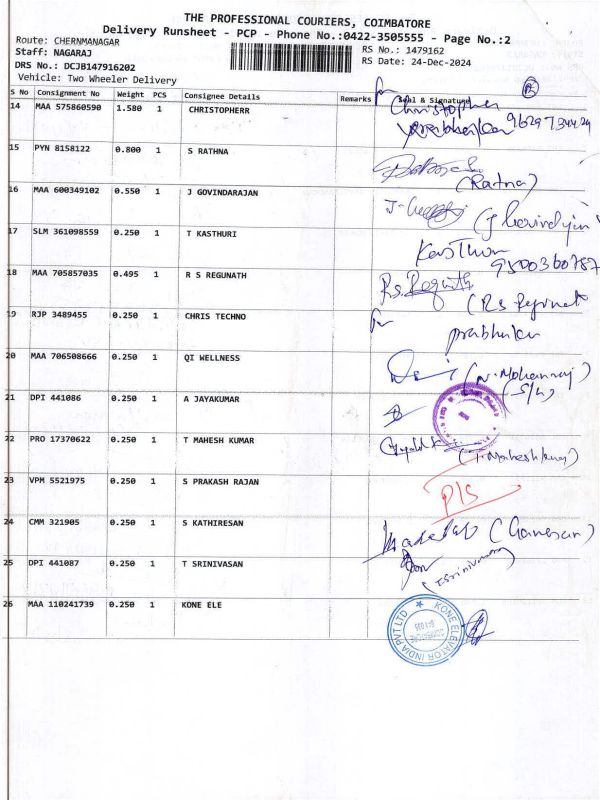 THE PROFESSIONAL COURIERS, COIMBATORE
Delivery Runsheet - PCP - Phone No.:0422-3505555 - Page No.:2
Route: CHERNMANAGAR
Staff: NAGARAJ
RS No.: 1479162
DRS No.: DCJB147916202
RS Date: 24-Dec-2024
Vehicle: Two Wheeler Delivery
S No Consignment No Weight PCS Consignee Details Remarks Seal & Signature
14 MAA 575860590 1.580 1 CHRISTOPHERR Christopher
prabhakar
15 PYN 8158122 0.800 1 S RATHNA
(Ratna)
16 MAA 600349102 0.550 1 J GOVINDARAJAN
17 SLM 361098559 0.250 1 T KASTHURI
9500360787
18 MAA 705857035 0.495 1 R S REGUNATH Rs. Regunath
19 RJP 3489455 0.250 1 CHRIS TECHNO For
prabhakar
20 MAA 706508666 0.250 1 QI WELLNESS (N. Mohanraj)
(S/W)
21 DPI 441086 0.250 1 A JAYAKUMAR
22 PRO 17370622 0.250 1 T MAHESH KUMAR (T. Mahesh Kumar)
23 VPM 5521975 0.250 1 S PRAKASH RAJAN
24 CMM 321905 0.250 1 S KATHIRESAN (Ganesan)
25 DPI 441087 0.250 1 T SRINIVASAN (T Srinivasan)
26 MAA 110241739 0.250 1 KONE ELE
KONE ELEVATOR INDIA PVT LTD